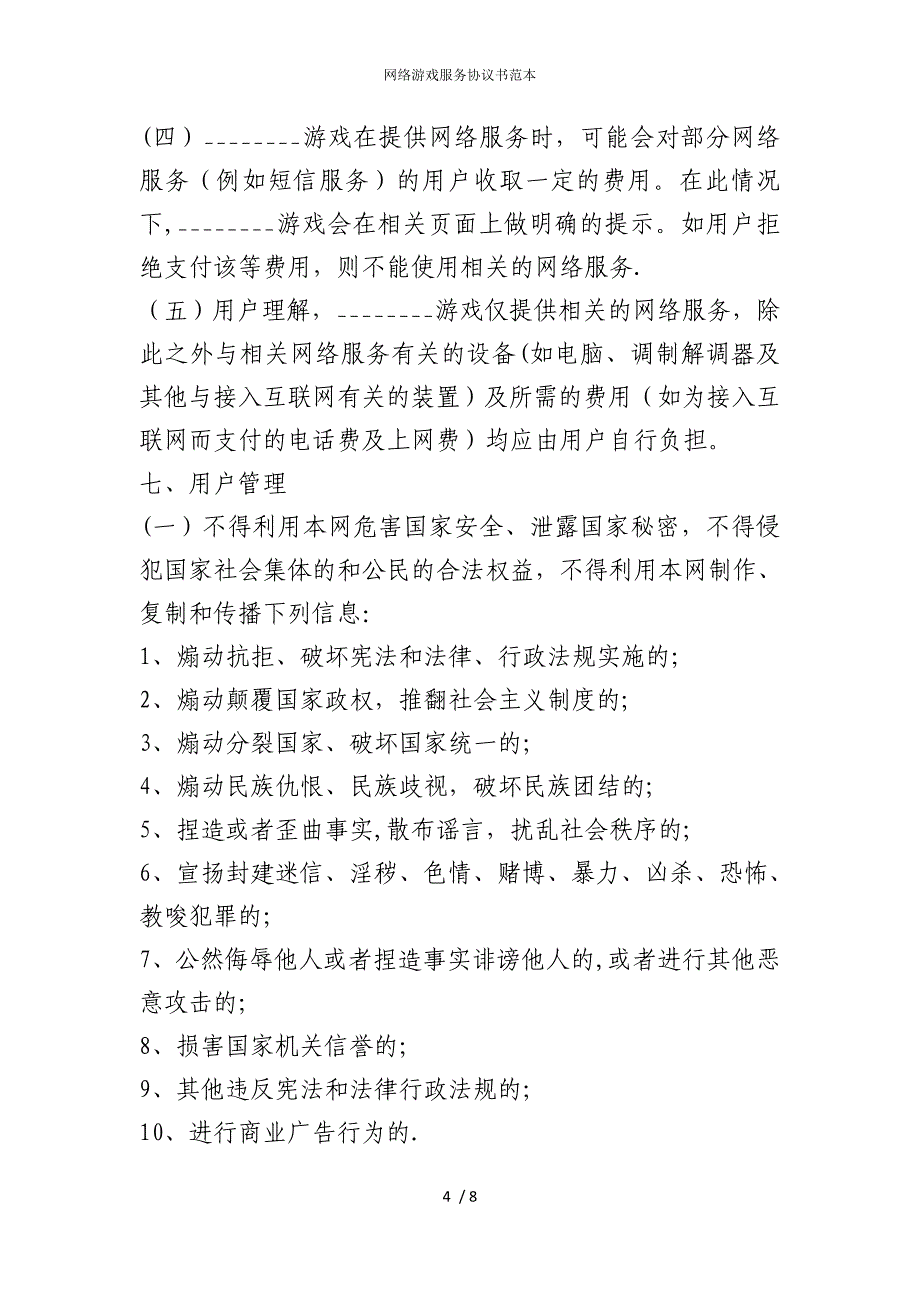 网络游戏服务协议书范本
(四）________游戏在提供网络服务时，可能会对部分网络
服务（例如短信服务）的用户收取一定的费用。在此情况
下,________游戏会在相关页面上做明确的提示。如用户拒
绝支付该等费用，则不能使用相关的网络服务.
（五）用户理解，________游戏仅提供相关的网络服务，除
此之外与相关网络服务有关的设备(如电脑、调制解调器及
其他与接入互联网有关的装置）及所需的费用（如为接入互
联网而支付的电话费及上网费）均应由用户自行负担。
七、用户管理
(一）不得利用本网危害国家安全、泄露国家秘密，不得侵
犯国家社会集体的和公民的合法权益，不得利用本网制作、
复制和传播下列信息：
1、煽动抗拒、破坏宪法和法律、行政法规实施的；
2、煽动颠覆国家政权，推翻社会主义制度的；
3、煽动分裂国家、破坏国家统一的；
4、煽动民族仇恨、民族歧视，破坏民族团结的；
5、捏造或者歪曲事实,散布谣言，扰乱社会秩序的；
6、宣扬封建迷信、淫秽、色情、赌博、暴力、凶杀、恐怖、
教唆犯罪的；
7、公然侮辱他人或者捏造事实诽谤他人的,或者进行其他恶
意攻击的；
8、损害国家机关信誉的；
9、其他违反宪法和法律行政法规的；
10、进行商业广告行为的.
4 / 8